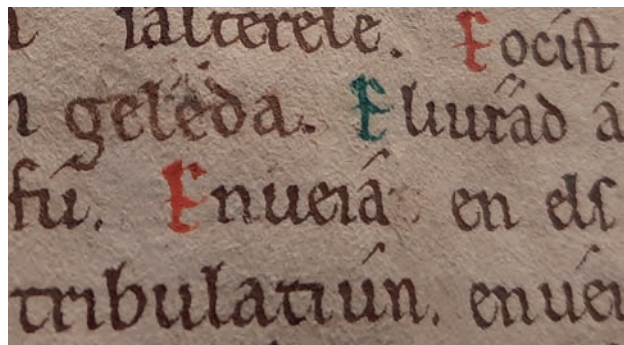 salterele. E ocist
geléda. E liurád á
fú. Enueiá en els
tribulatiún. enuéi